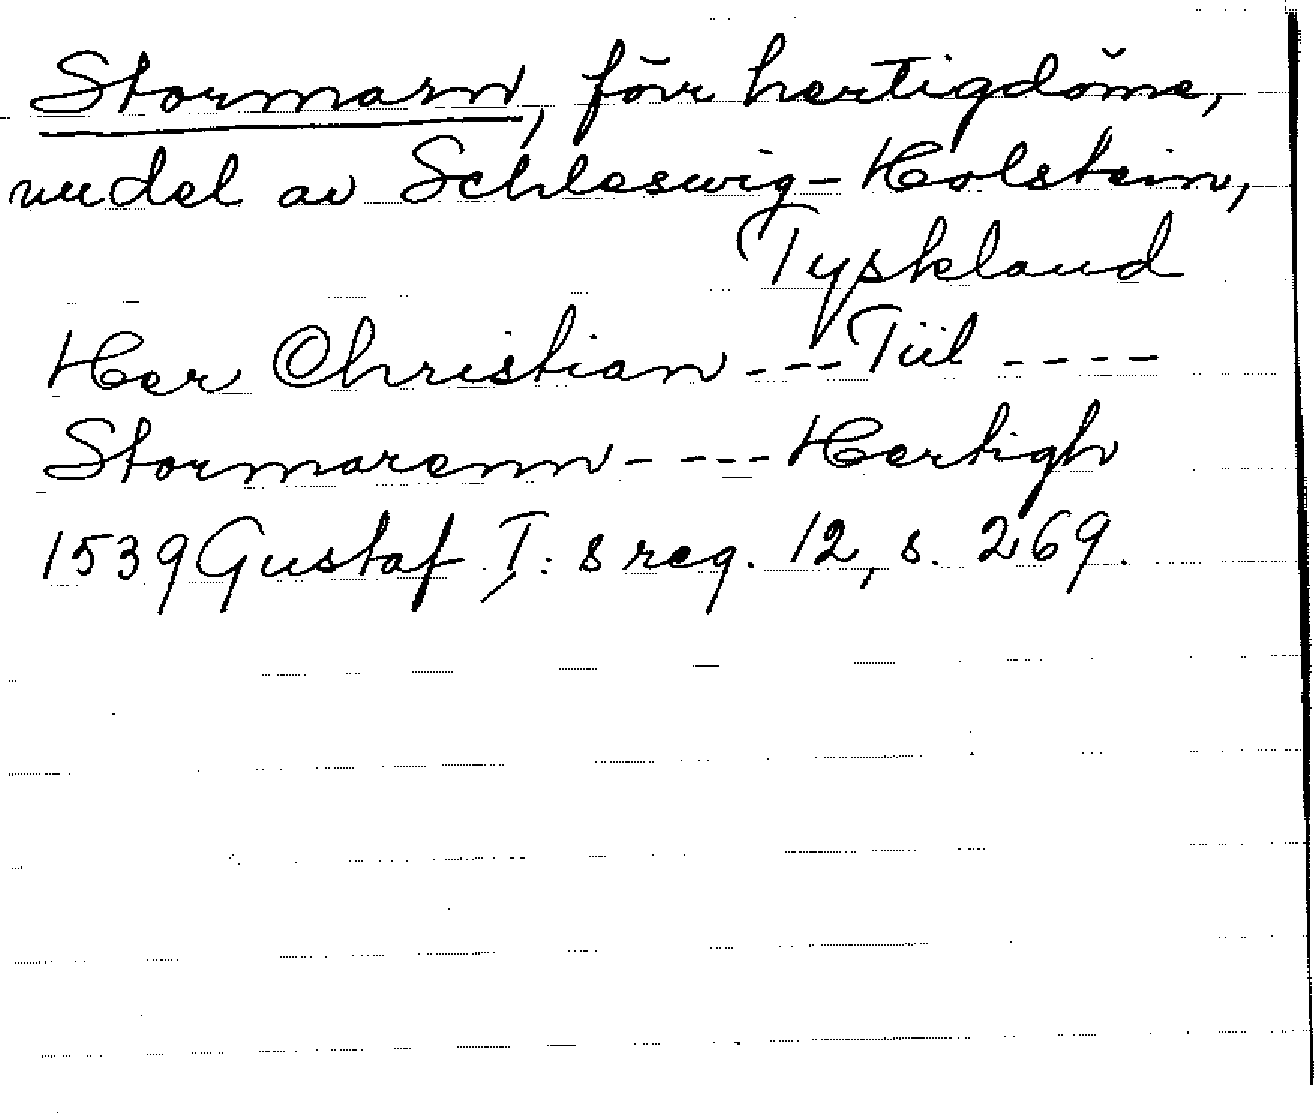 Stormarn, förr hertigdöme,
nu del av Schleswig-Holstein,
Tyskland
Her Christian --- Tiil ----
Stormarenn ---- Hertigh
1539 Gustaf I:s reg. 12, s. 269.